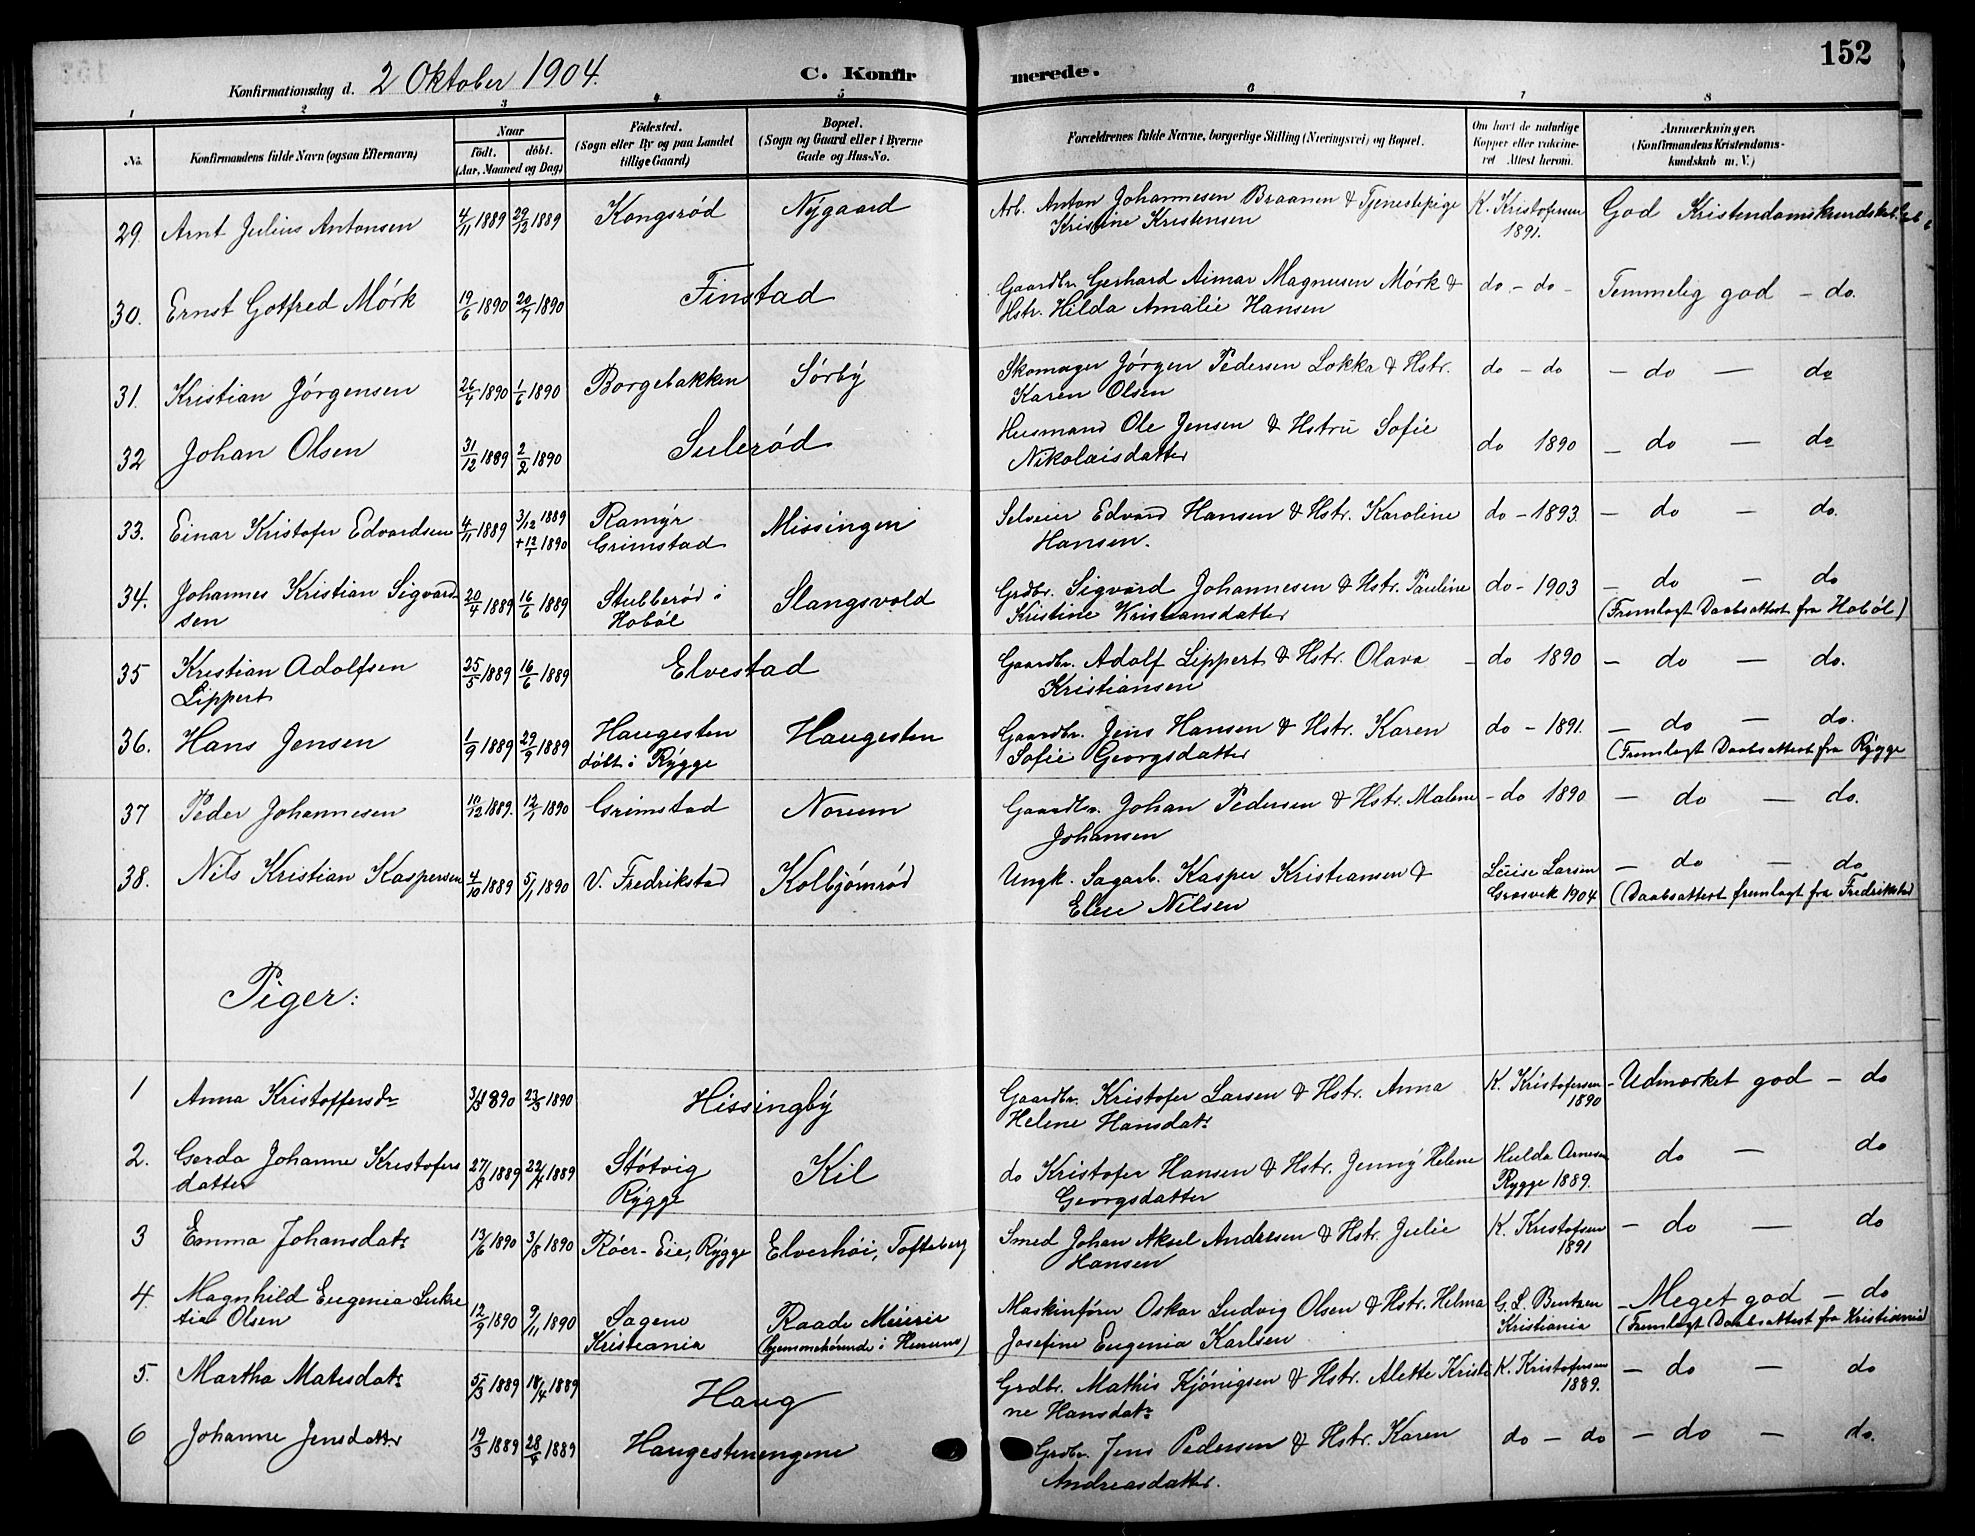 152
Konfirmationsdag d. 2 Oktober 1904.
C. Konfirmerede.
1 2 3 4 5 6 7 8
No. Konfirmandens fulde Navn (ogsaa Efternavn) Naar født. døbt. (Aar, Maaned og Dag) Fødested. (Sogn eller By og paa Landet tillige Gaard) Bopæl. (Sogn og Gaard eller i Byerne Gade og Hus-No. Forældrenes fulde Navne, borgerlige Stilling (Næringsvei) og Bopæl. Om havt de naturlige Kopper eller vakcineret Attest herom. Anmærkninger. (Konfirmandens Kristendomskundskab m. V.)
29. Arnt Julius Antonsen 4/11 1889 29/12 1889 Kongsrød Nygaard Arb. Anton Johannesen Braanen & Tjenestepige K. Kristofersen God Kristendomskundskab
Kristine Kristensen 1891.
30. Ernst Gotfred Mørk 19/6 1890 20/7 1890 Finstad Gaardbr. Gerhard Aimar Magnusen Mørk & do - do - Temmelig god - do.
Hstr. Hilda Amalie Hansen
31. Kristian Jørgensen 26/4 1890 1/6 1890 Borgebakken Sørby Skomager Jørgen Pedersen Løkka & Hstr. do - do - do - do
Karen Olsen
32 Johan Olsen 31/12 1889 2/2 1890 Sulerød Husmand Ole Jensen & Hstru Sofie do 1890 - do - do
Nikolaisdatter
33. Einar Kristofer Edvardsen 4/11 1889 3/12 1889 Ramyr Missingen Selveier Edvard Hansen & Hstr. Karoline do - 1893. - do - do.
+ 12/1 1890 Grimstad Hansen.
34. Johannes Kristian Sigvard- 20/4 1889 16/6 1889 Stubberød i Slangsvold Grdbr. Sigvard Johannesen & Hstr. Pauline do - 1903 - do - do
sen Hobøl Kristine Kristiansdatter (Fremlagt Daabsattest fra Hobøl)
35 Kristian Adolfsen 25/5 1889 16/6 1889 Elvestad Gaardbr. Adolf Lippert & Hstr. Olava - do 1890 - do - do.
Lippert Kristiansen
36. Hans Jensen 1/9 1889 29/9 1889 Haugesten Haugesten Gaardbr. Jens Hansen & Hstr. Karen do - 1891. - do - do.
døbt i Rygge Sofie Georgsdatter (Fremlagt Daabsattest fra Rygge
37 Peder Johannesen 10/12 1889. 12/1 1890 Grimstad Norum Gaardbr. Johan Pedersen & Hstr. Malene - do 1890 - do - do.
Johansen
38. Nils Kristian Kaspersen 4/10 1889 5/1 1890 V. Fredrikstad Kolbjørnrød Ungk. Sagarb. Kasper Kristiansen & Luise Larsen - do - do
Elen Nilsen Græsvik 1904 (Daabsattest fremlagt fra Fredrikstad
Piger:
1 Anna Kristoffersdr 3/3 1890 23/3 1890 Hissingby Gaardbr. Kristofer Larsen & Hstr. Anna K. Kristofersen - Udmærket god - do
Helene Hansdatr 1890
2. Gerda Johanne Kristofers 27/3 1889 22/4 1889 Støtvig Kil do Kristofer Hansen & Hstr. Jenny Helene Hulda Arnesen do - do
datter Rygge Georgsdatter Rygge 1889.
3 Emma Johansdatr 13/6 1890 3/8 1890 Røer-Eie, Rygge Elverhøi, Tofteberg Smed Johan Aksel Andresen & Hstr. Julie K. Kristofersen - do - do
Hansen 1891
4. Magnhild Eugenia Lukre 12/9 1890 9/11 1890 Sagene Raade Meieri Maskinfører Oskar Ludvig Olsen & Hstr. Helma G. L. Bentzen - Meget god - do
tia Olsen Kristiania (hjemmehørende i ) Josefine Eugenia Karlsen Kristiania (Fremlagt Daabsattest fra Kristiania)
5. Martha Matisdatr 5/3 1889 18/4 1889 Haug Grdbr. Mathis Kjønigsen & Hstr. Alette Kristi K. Kristofersen - do - do
ne Hansdatr 1889.
6 Johanne Jensdatter 19/3 1889 28/4 1889 Haugestenengene Grdbr. Jens Pedersen & Hstr. Karen do - do - do - do.
Andreasdatter.